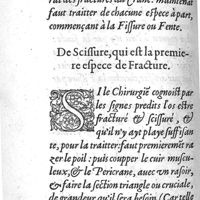 faut traitter de chacune espece à part,
commençant à la Fissure ou Fente.
De Scissure, qui est la premie-
re espece de Fracture.
SI le Chirurgiẽ cognoist par
les signes predits l'os estre
fracturé & scissuré, &
qu'il n'y ait playe suffisan-
te, pour la traitter: faut premieremẽt ra-
zer le poil: puis coupper le cuir muscu-
leux, & le Pericrane, auec vn rasoir,
& faire la section triangle ou cruciale,
de grandeur qu'il sera besoin (Car telle